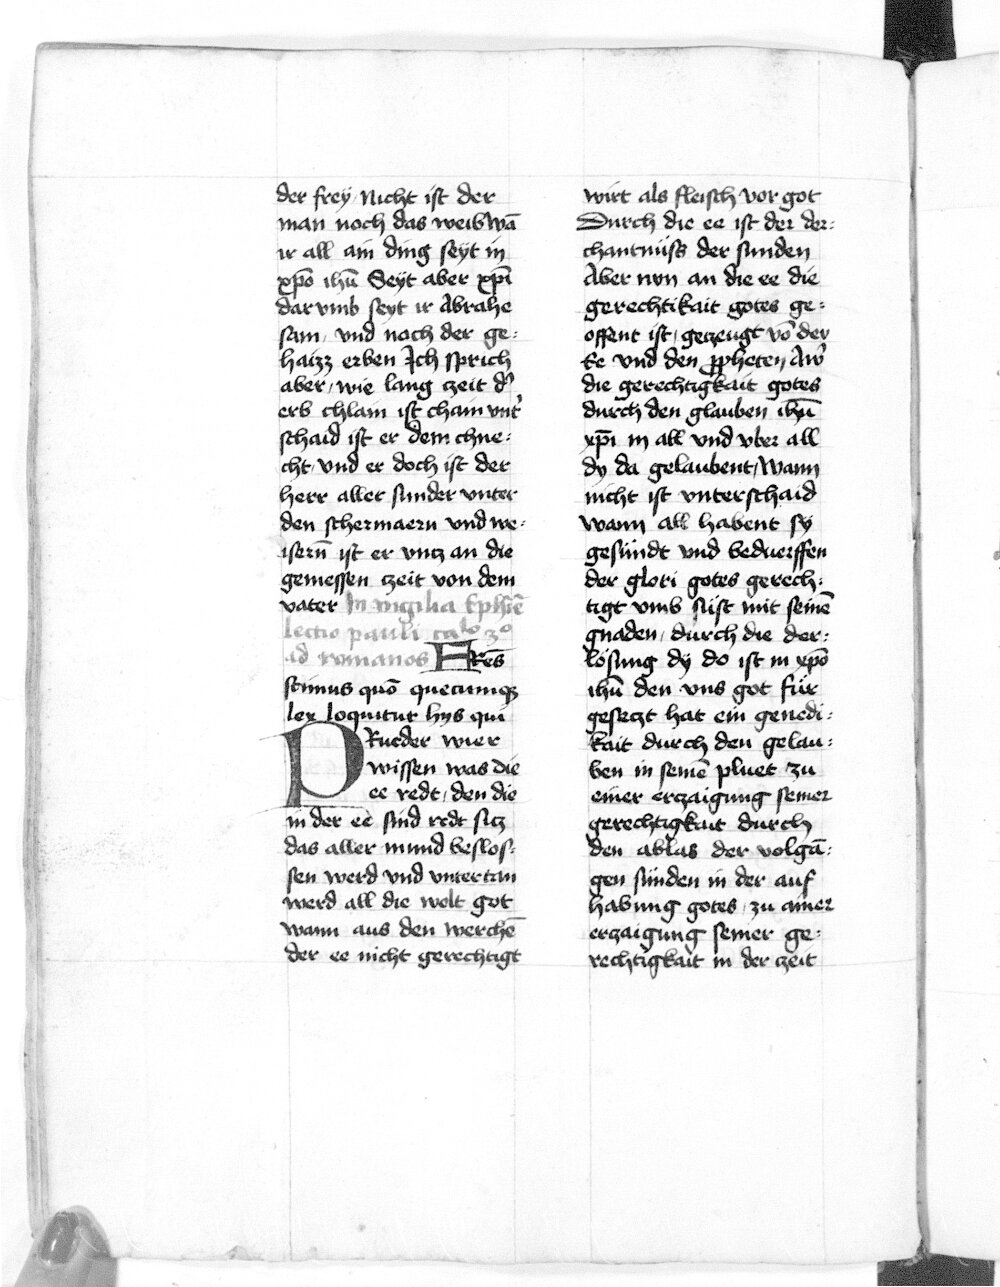 der frey Nicht ist der
man noch das weib Wā
ir all ain ding seyt in
xp̄o ihū Seyt aber xp̄i
dar vmb seyt ir Abrahe
sam, vnd noch der ge:
haizz erben Ich sprich
aber, wie lang czeit d'
erb chlain ist chain vnt'
schaid ist er dem chne:
cht, vnd er doch ist der
herr aller sunder vnter
den schermaern vnd we:
isern̄ ist er vncz an die
gemessen czeit von dem
vater In vigilia Ephīe
lectio pauli ca^lo 3^o
ad romanos FRēs
scimus quō quecumqz
lex loquitur hys qui
PRueder wier
wissen was die
ee redt, den die
in der ee sind redt sicz
das aller mund beslos:
sen werd vnd vntertan
werd all die welt got
wann aus den werchē
der ee nicht gerechtigt
wirt als fleisch vor got
Durch die ee ist der der:
chantnüss der sunden
Aber nvn an die ee die
gerechtikait gotes ge:
offent ist, geczeugt vō der
Ee vnd den ꝓpheten Aw'
die gerechtigkait gotes
durch den glauben ihū
xp̄i in all vnd vber all
dy da gelaubent, Wann
nicht ist vnterschaid
wann all habent sy
gesündt vnd beduerffen
der glori gotes gerech:
tigt vmb süst mit seinē
gnaden, durch die der:
lösung dy do ist in xp̄o
ihū den vns got für
geseczt hat ein genedi:
kait durch den gelau:
ben in seinē pluet zu
einer erczaigung seiner
gerechtigkait durch
den ablas der volgā:
gen sünden in der auf
habung gotes, zu ainer
erczaigung seiner ge:
rechtigkait in der czeit